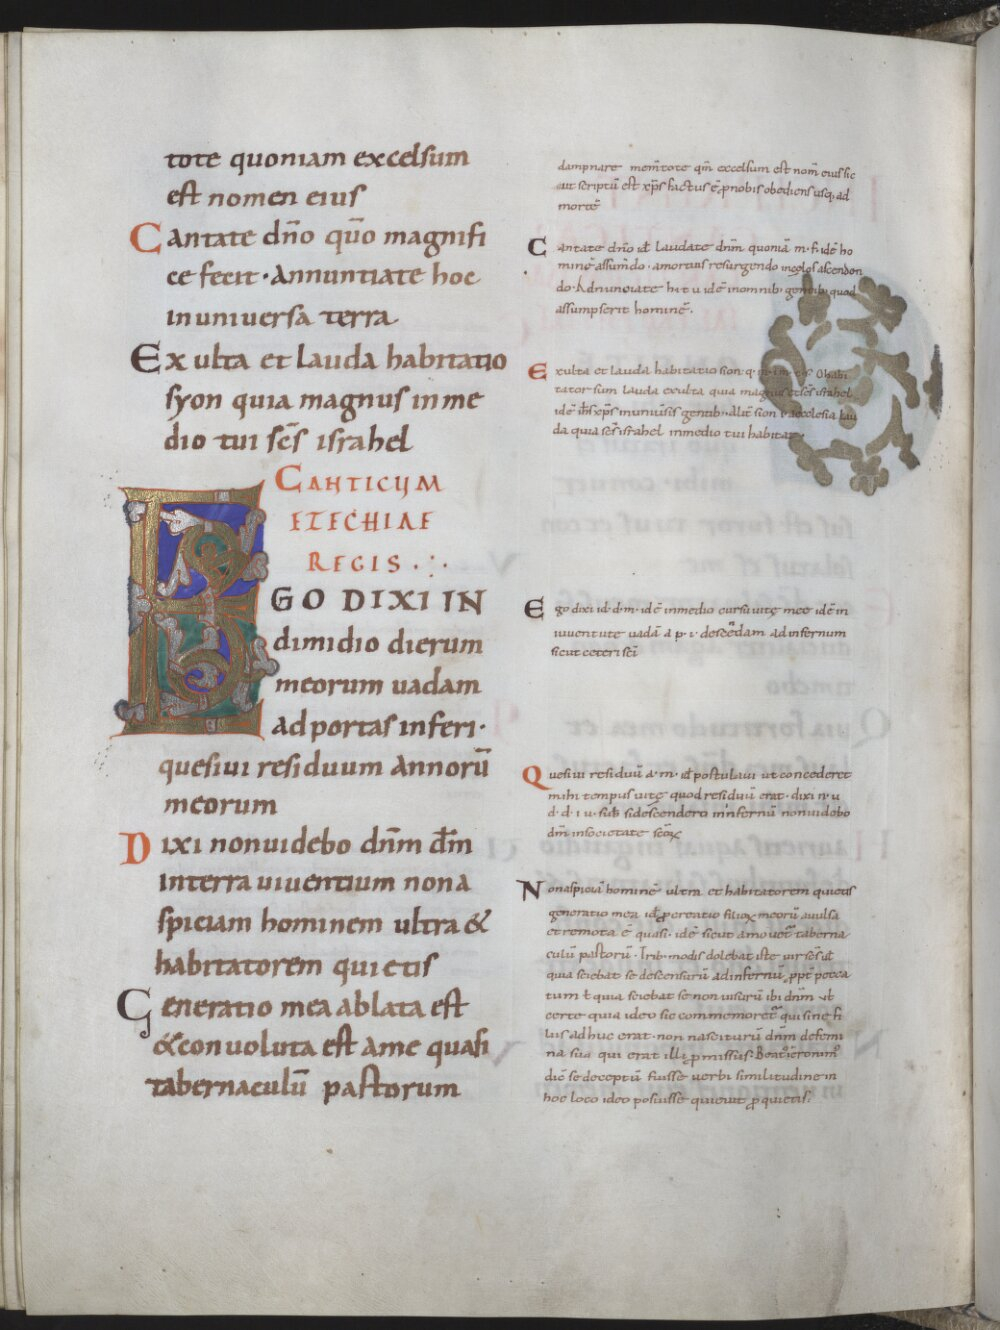 tote quoniam excelsum
est nomen eius
Cantate dn̄o qūo magnifi
ce fecit · Annuntiate hoc
in universa terra
Exulta et lauda habitatio
syon quia magnus in me
dio tui sc̄s israhel
CANTICUM
EZECHIAE
REGIS
EGO DIXI IN
dimidio dierum
meorum uadam
ad portas inferi ·
quesiui residuum annorū
meorum
Dixi non uidebo dn̄m dm̄
in terra uiuentium non a
spiciam hominem ultra &
habitatorem quietis
Generatio mea ablata est
& conuoluta est a me quasi
tabernaculū pastorum
dampnare mem̄tote qm̄ excelsum est nom̄ eius sic
scriptū est xp̄s factus ē p nobis obediens usq; ad
mortē
Cantate dn̄o id̄ laudate dn̄m quoniā m · f · idē ho
minē assum̄do · a mortuis resurgendo in celos ascendon
do · Adnunciate h · i · t · u idē in omnib; gentib; quod
assumpserit hominē ·
Exulta et lauda habitatio sion · q · m · i m · t · s · O habi
tator sium lauda exulta quia magnus et sc̄s israhel
idē ih̄s xp̄s in uniu̅sis gentib; · Alit̄ sion aecclesia lau
da quia sc̄s israhel in medio tui habitat
Ego dixi i d · d · m · idē in medio cursu uitę meę idē in
iuuentute uadā a p · i · descēdam ad infernum
sicut ceteri sc̄i
Quesiui residuū a · m · id̄ postulaui ut concederet
mihi tempus uitę quod residuū erat · dixi n · u
d · d · i · u · sub̄ si descendero in infernū non uidebo
dn̄m in societate
Non aspiciā hominē ultra et habitatorem quietis
generatio mea id̄ pcreatio filioꝝ meorū auulsa
et remota ē quasi · idē sicut amouet̄ taberna
culū pastorū · Trib; modis dolebat iste uir sc̄s id̄
quia sciebat se descensurū ad infernū ppt̄ pecca
tum t̄ quia sciebat se non uisurū ibi dn̄m ut
certe quia ideo sic commemoret̄ qui sine fi
liis adhuc erat · non nasciturū dn̄m de femi
na sua qui erat illi pmissus · Beat; ieronim;
dic̄ se deceptū fuisse uerbi similitudine in
hoc loco ideo posuisse quieuit p quietis :